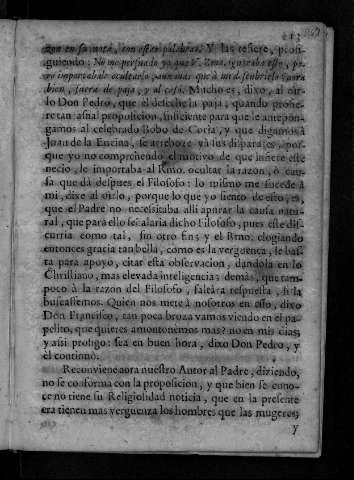 213
zon en su nota, con estas palabras. Y las refiere, prosi-
guiendo: No me persuado yo que V. Rma. ignoraba esto, pe-
ro importabale ocultarlo, aun mas que à mi descubrirlo: aora
bien, fuera de paja, y al caso. Mucho es, dixo, al oir-
lo Don Pedro, que èl deseche la paja, quando profie-
re tan asnal proposicion, suficiente para que le antepon-
gamos al celebrado Bobo de Coria, y que digamos à
Juan de la Encina, se arreboze yà sus disparates, por-
que yo no comprehendo el motivo de que infiere este
necio, le importaba al Rmo. ocultar la razon, ò cau-
sa que dà despues el Filosofo: lo mismo me sucede à
mi, dixe al oirlo, porque lo que yo siento de esto, es,
que el Padre no necessitaba alli apurar la causa natu-
ral, que para ello señalaria dicho Filosofo, pues este dis-
curria como tal, sin otro fin; y el Rmo. elogiando
entonces gracia tan bella, como es la verguenza, le bas-
ta para apoyo, citar esta observacion, dandola en lo
Christiano, mas elevada inteligencia; demàs, que tam-
poco à la razon del Filosofo, faltàra respuesta, si la
buscassemos. Quien nos mete à nosotros en esso, dixo
Don Francisco, tan poca broza vamos viendo en el pa-
pelito, que quieres amontonemos mas? no en mis dias;
y assi prosigo: sea en buen hora, dixo Don Pedro, y
èl continuò.
Reconviene aora nuestro Autor al Padre, diziendo,
no se conforma con la proposicion, y que bien se cono-
ce no tiene su Religiosidad noticia, que en la presente
era tienen mas verguenza los hombres que las mugeres;
y